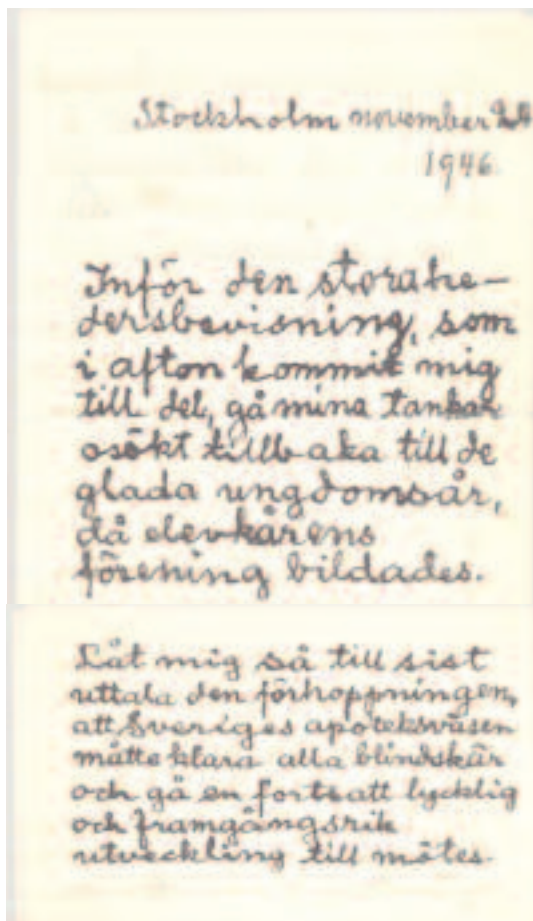 Stockholm november 24
1946.
Inför den stora he-
dersbevisning, som
i afton kommit mig
till del, gå mina tankar
osökt tillbaka till de
glada ungdomsår,
då elevkårens
förening bildades.
Låt mig så till sist
uttala den förhoppningen,
att Sveriges apoteksväsen
måtte klara alla blindskär
och gå en fortsatt lycklig
och framgångsrik
utveckling till mötes.